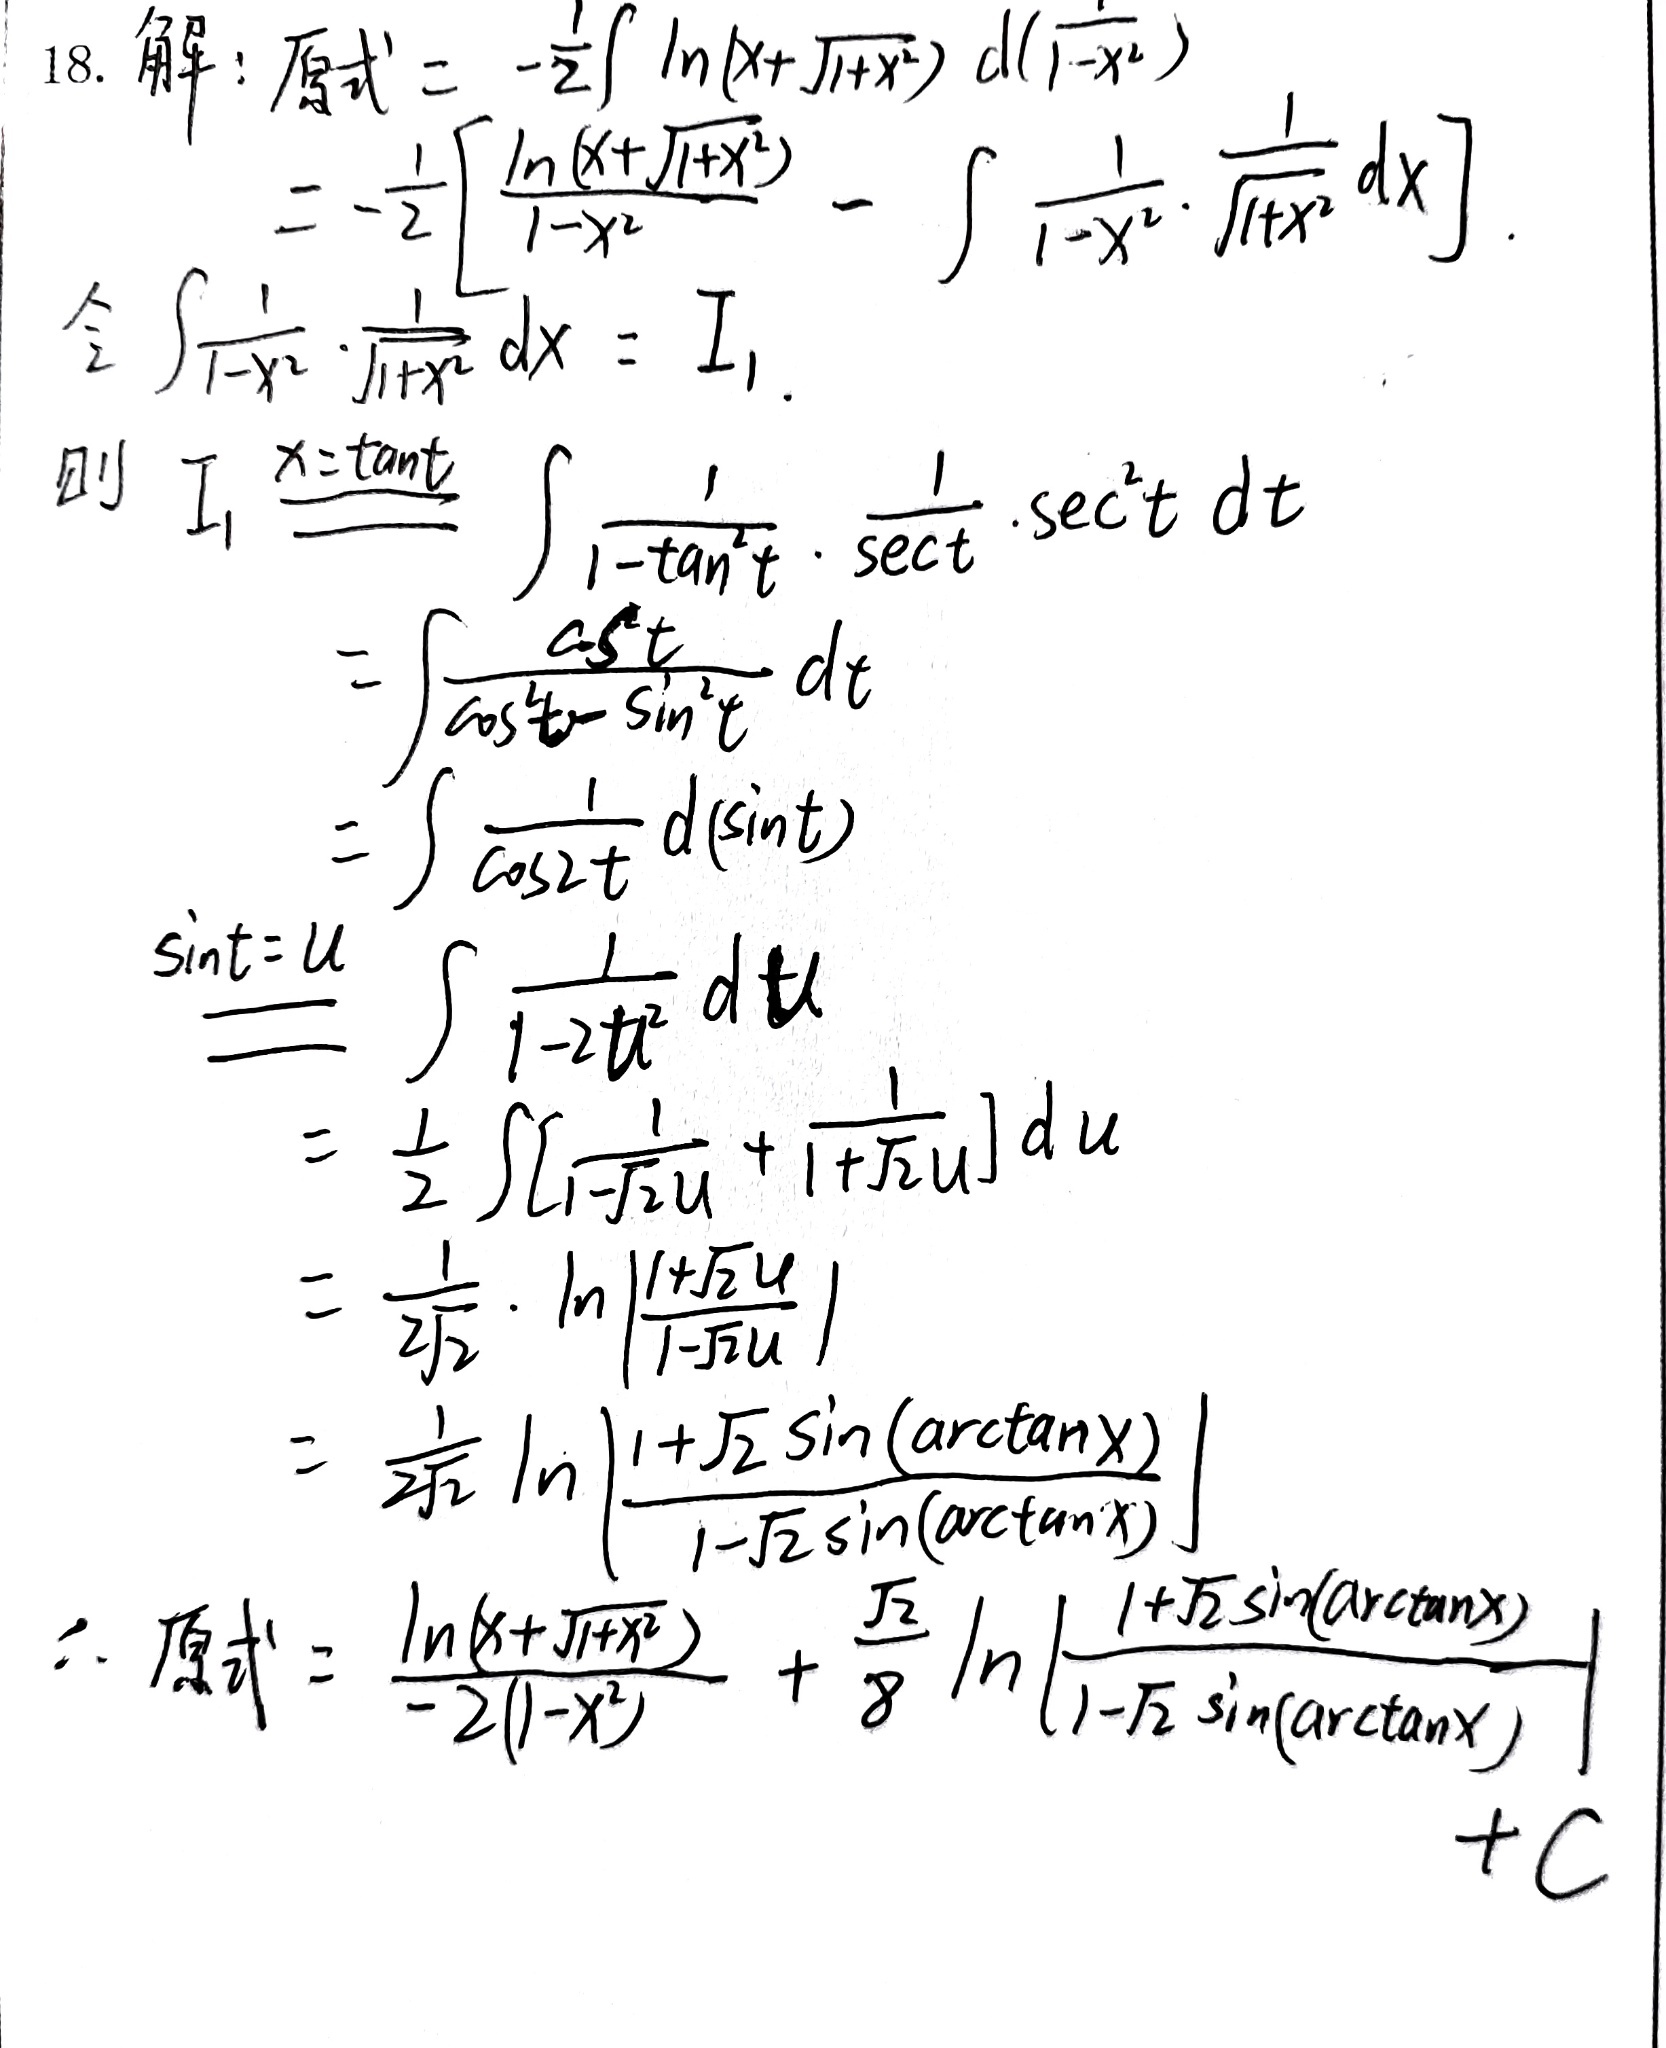 18. 解：原式 = -\frac{1}{2}∫ ln(x+√(1+x²)) d(\frac{1}{1-x²})
= -\frac{1}{2}[\frac{ln(x+√(1+x²))}{1-x²} - ∫ \frac{1}{1-x²}·\frac{1}{√(1+x²)} dx].
令 ∫\frac{1}{1-x²}·\frac{1}{√(1+x²)} dx = I₁.
则 I₁ \xlongequal{x=tant} ∫ \frac{1}{1-tan²t}·\frac{1}{sect}·sec²t dt
= ∫\frac{cos²t}{cos²t-sin²t} dt
= ∫ \frac{1}{cos2t} d(sint)
\xlongequal{sint=u} ∫ \frac{1}{1-2u²} du
= \frac{1}{2} ∫[\frac{1}{1-√2u} + \frac{1}{1+√2u}] du
= \frac{1}{2√2}· ln|\frac{1+√2u}{1-√2u}|
= \frac{1}{2√2} ln|\frac{1+√2 sin(arctanx)}{1-√2 sin(arctanx)}|
∴ 原式 = \frac{ln(x+√(1+x²))}{-2(1-x²)} + \frac{√2}{8} ln|\frac{1+√2 sin(arctanx)}{1-√2 sin(arctanx)}|
+ C